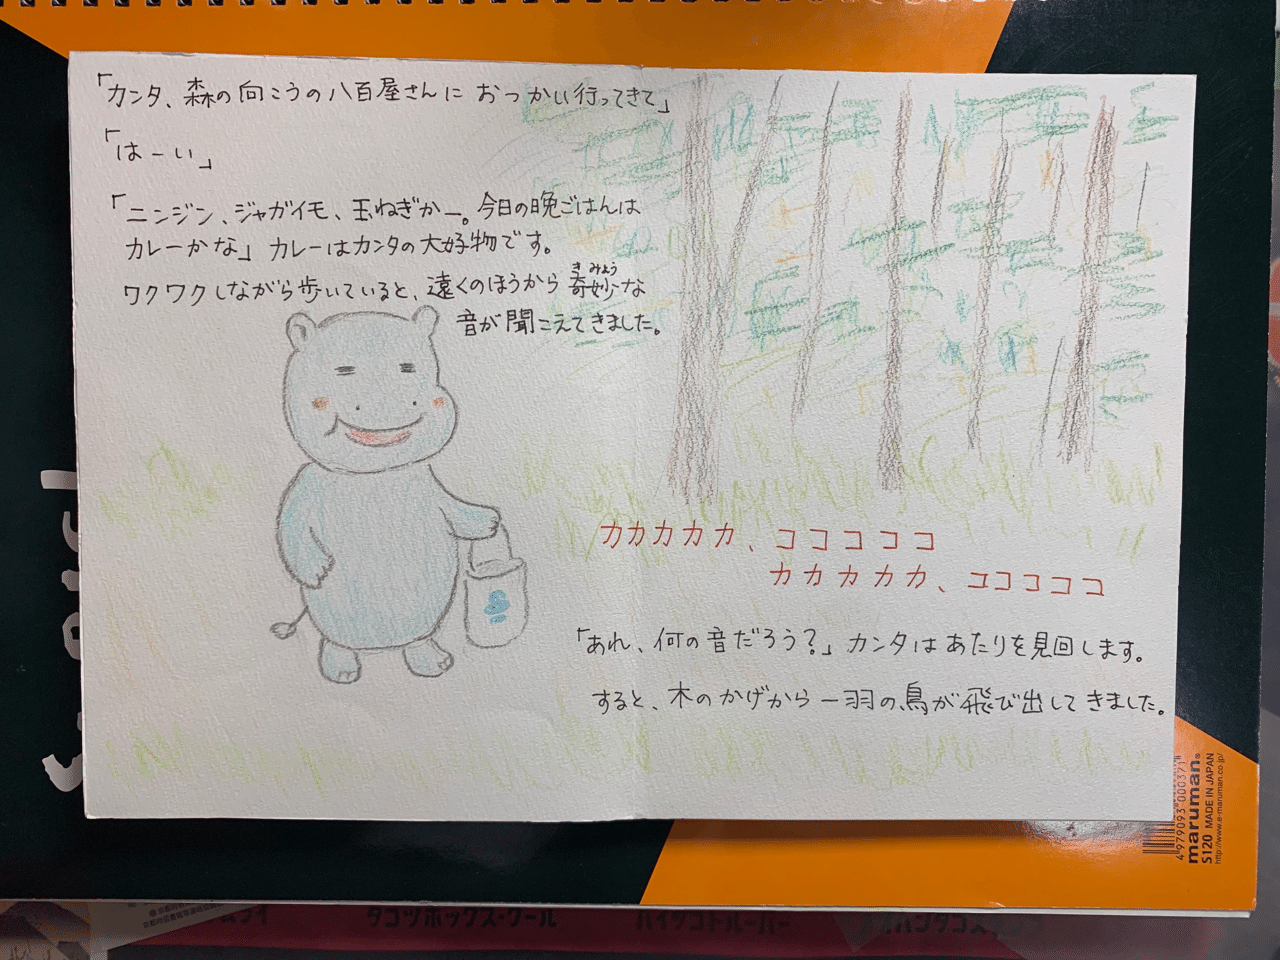 「カンタ、森の向こうの八百屋さんに おつかい行ってきて」
「はーい」
「ニンジン、ジャガイモ、玉ねぎかー。今日の晩ごはんは
カレーかな」カレーはカンタの大好物です。
ワクワクしながら歩いていると、遠くのほうから奇妙な
きみょう
音が聞こえてきました。
カカカカカ、コココココ
カカカカカ、コココココ
「あれ、何の音だろう?」カンタはあたりを見回します。
すると、木のかげから一羽の鳥が飛び出してきました。
4979093 000371
maruman®
S120 MADE IN JAPAN
http://www.e-maruman.co.jp/
タコツボックス・クール